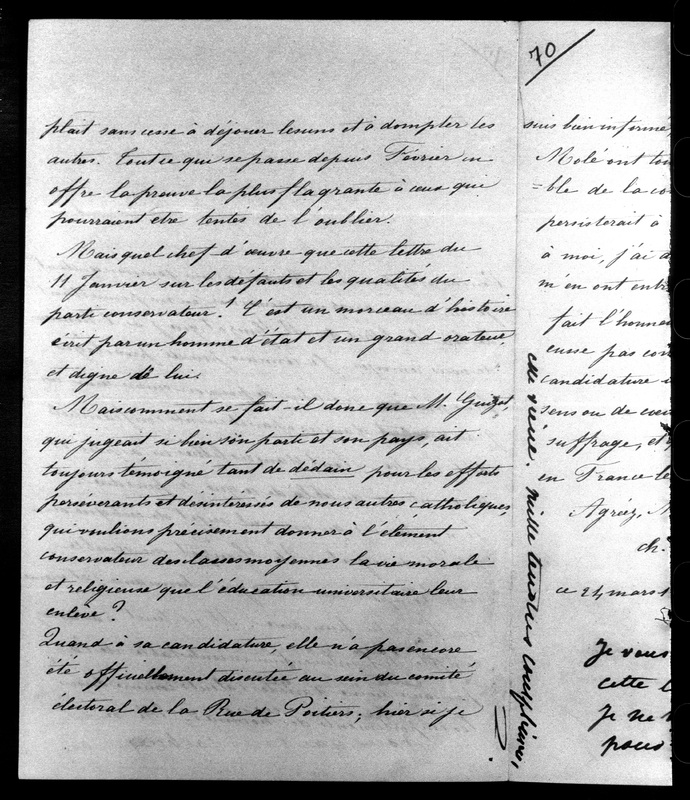 plait sans cesse à déjouer les uns et à dompter les
autres. Tout ce qui se passe depuis Février en
offre la preuve la plus flagrante à ceux qui
pourraient etre tentés de l'oublier.
Mais quel chef-d'œuvre que cette lettre du
11 Janvier sur les défauts et les qualités du
parti conservateur! C'est un morceau d'histoire
écrit par un homme d'état et un grand orateur,
et digne de lui.
Mais comment se fait-il donc que M. Guizot,
qui jugeait si bien son parti et son pays, ait
toujours témoigné tant de dédain pour les efforts
persévérants et désintéressés de nous autres catholiques,
qui voulions précisement donner à l'élément
conservateur des classes moyennes la vie morale
et religieuse que l'éducation universitaire leur
enlève?
Quand à sa candidature, elle n'a pas encore
été officiellement discutée au sein du comité
électoral de la Rue de Poitiers; hier si je
70
suis bien informé
Molé ont tou
=ble de la co
persisterait à
à moi, j'ai d
m'en ont entre
fait l'honneu
eusse pas con
candidature
sens ou de cœu
suffrage, et
en France le
Agréez, M
ch.
ce 24 mars 1
Je vous
cette l
Je ne
pous
mille tendres